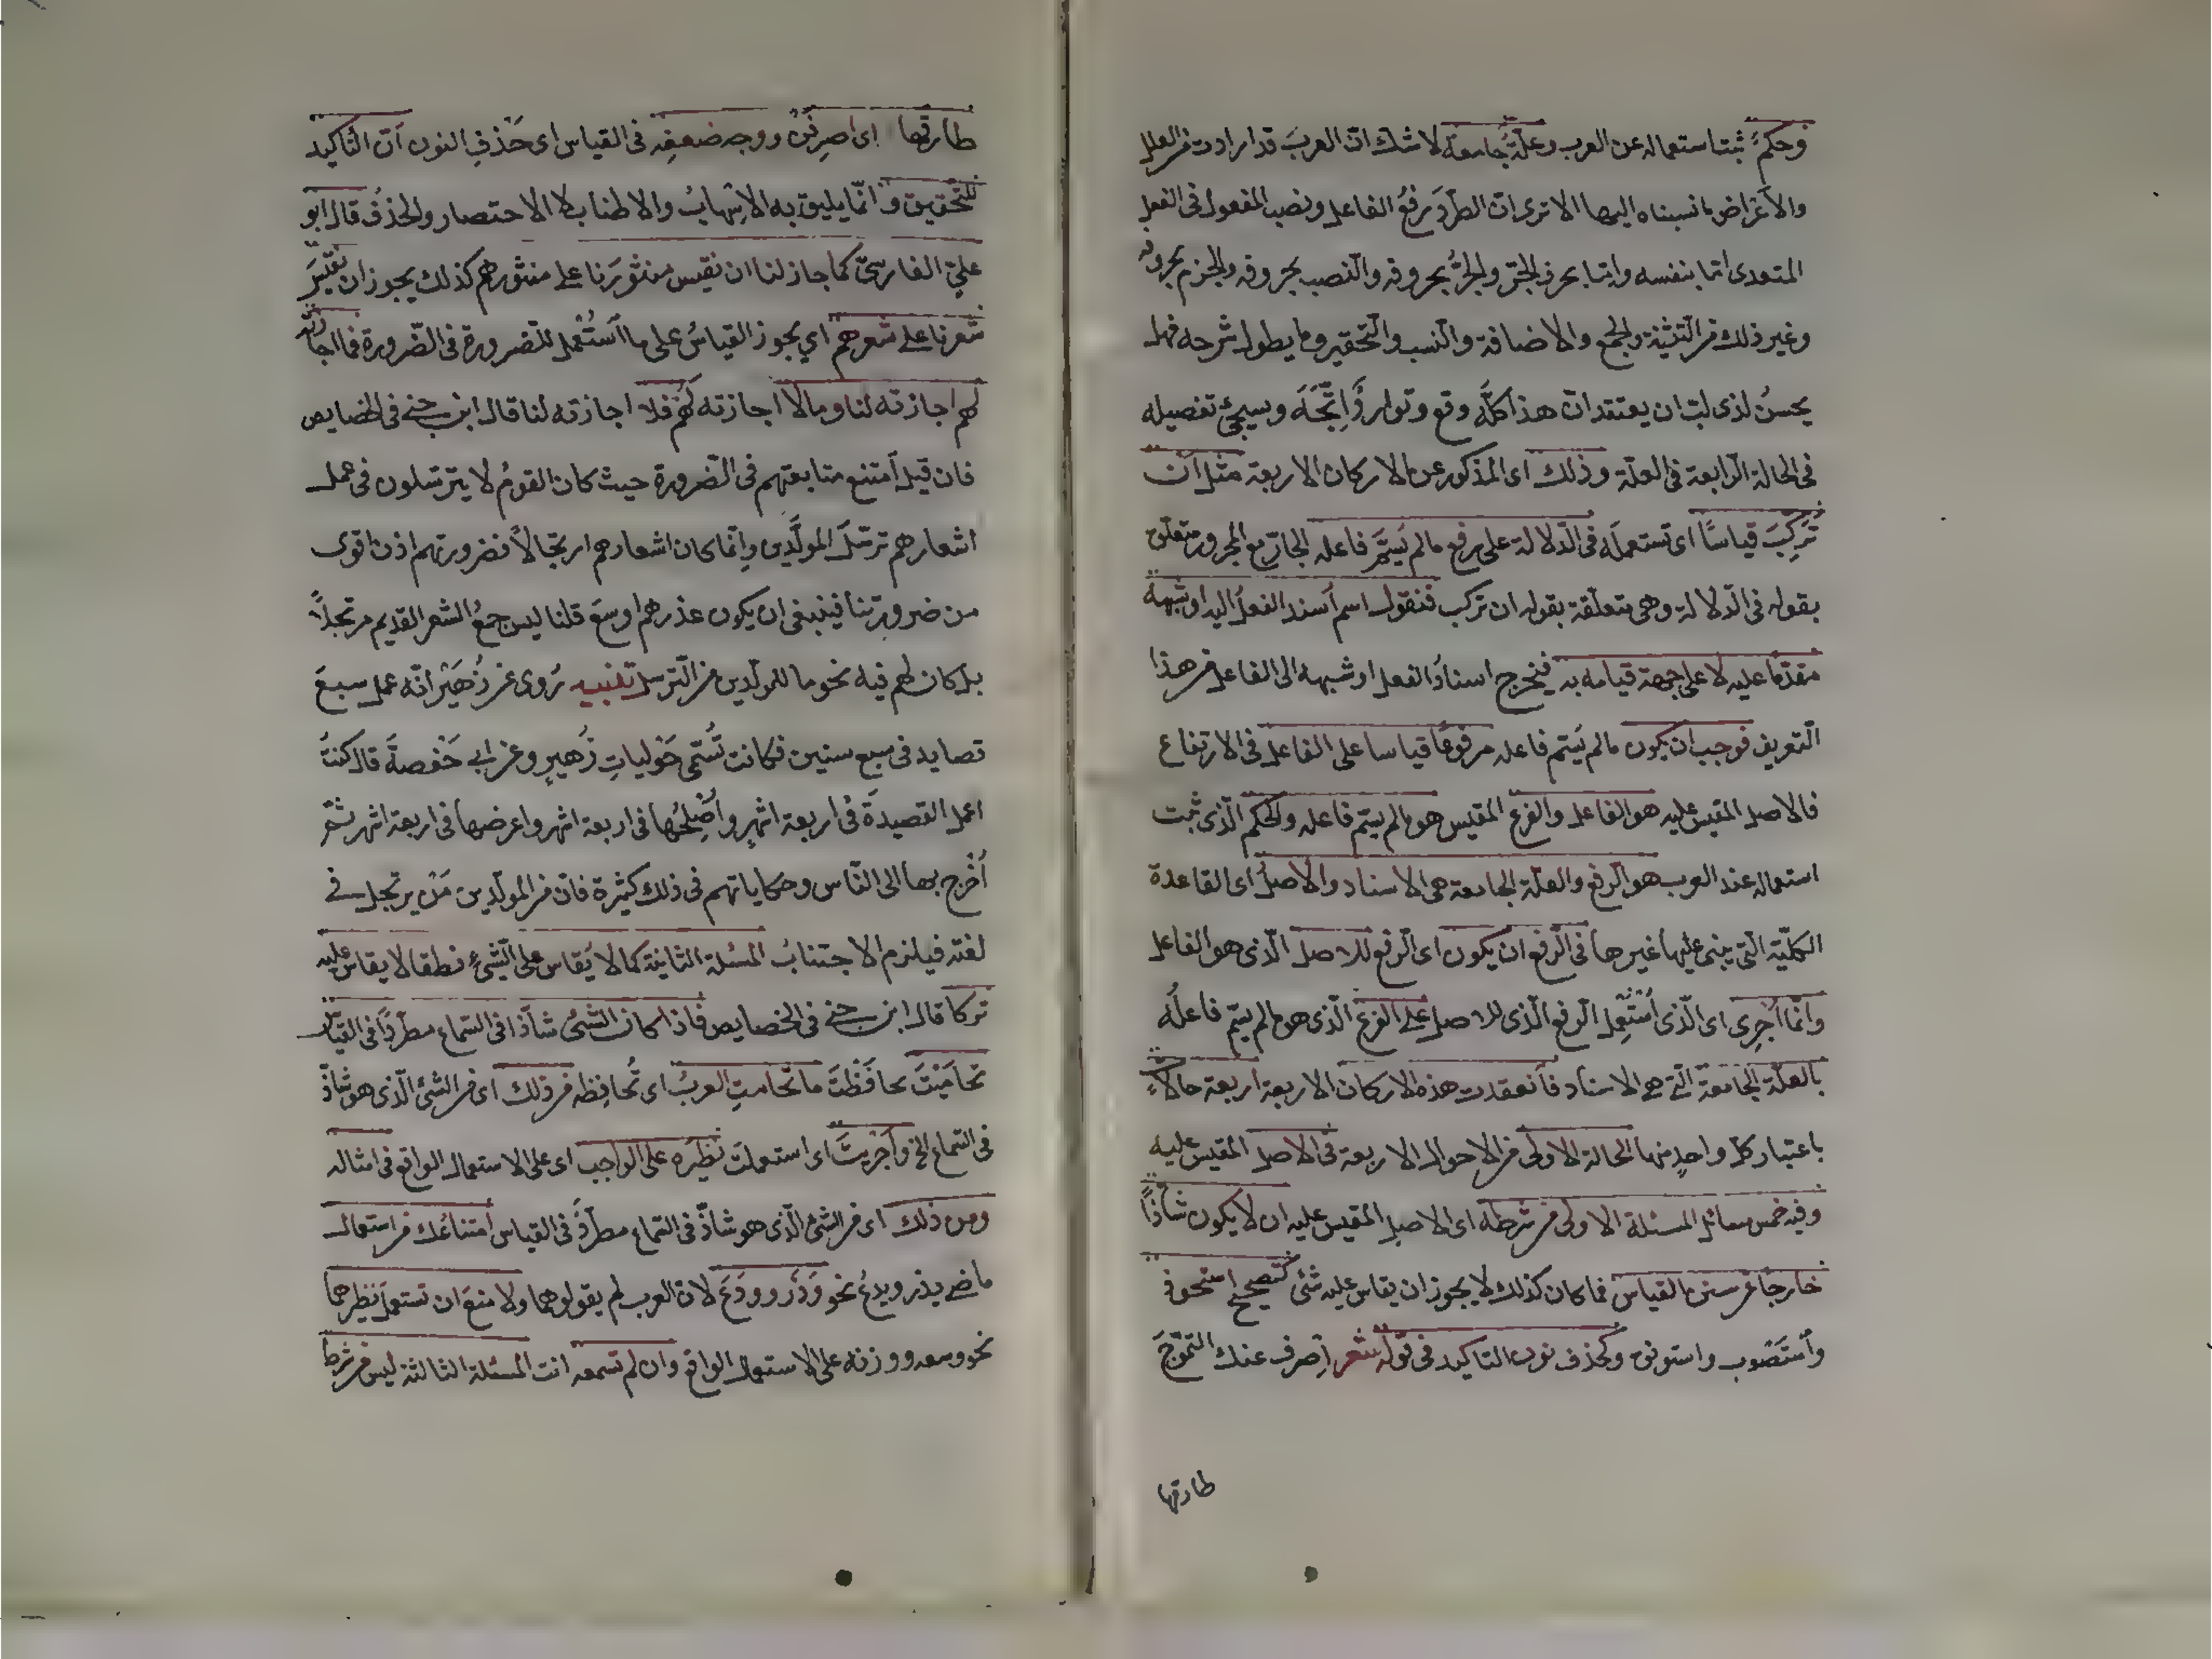 وحكمٌ ثبت استعماله عن العرب وعلّةٌ جامعة لا شك ان العربَ قد ارادت من العلل
والاَغراض ما نسبناه اليها الا ترى ان الطّردَ رفعُ الفاعل ونصب المفعول فى الفعل
المتعدى امّا بنفسه وامّا بحرف الجرّ والجرُّ بحروفه والنّصب بحروفه والجزم بحروفه
وغير ذلك من التّثنية والجمع والاضافة والنّسب والتّحقير وما يطول شرحه فهل
يحسنُ لذى لبّ ان يعتقد انّ هذا كلّه وقع وتوارُدٌ اِتَّجَهَ وسيجئ تفصيله
فى الحالة الرّابعة فى العلّة وذلك اى المذكور عن الاركان الاربعة مثل اَنْ
تُركِّبَ قياسًا اى تستعمله فى الدّلالة على رفع مالم يُسَمَّ فاعله الجارّ مع المجرور متعلق
بقوله فى الدّلالة وهى متعلّقة بقوله ان تركب فنقول اسم اُسند الفعلُ اليه او شبهه
مقدّمًا عليه لا على جهة قيامه به فيخرج اسنادُ الفعل او شبهه الى الفاعل من هذا
التّعريف فوجب ان يكون مالم يُسمّ فاعله مرفوعًا قياسا على الفاعل فى الارتفاع
فالاصل المقيس عليه هو الفاعل والفرع المقيس هو مالم يسمّ فاعله والحكم الّذى ثبت
استعماله عند العرب هو الرّفع والعلّة الجامعة هى الاسناد والاصلُ اى القاعدة
الكلّيّة الّتى يبنى عليها غيرها فى الرّفع ان يكون اى الرّفع للاصل الّذى هو الفاعل
وانّما اُجرى اى الّذى اُسْتُعْمِل الرّفع الّذى للاصل على الفرع الّذى هو مالم يسمّ فاعلُه
بالعلّة الجامعة الّتى هى الاسناد فانعقدت هذه الاركان الاربعة اربعة حالاتٍ
باعتبار كلّ واحدٍ منها الحالة الاولى من الاحوال الاربعة فى الاصل المقيس عليه
وفيه خمس مسائل المسئلة الاولى من شرطه اى الاصل المقيس عليه ان لا يكون شاذًّا
خارجًا عن سنن القياس فما كان كذلك لا يجوز ان يقاس عليه شئ كتصحيح استحوذ
واُستَصْوِب واستونق وكحذف نون التاكيد فى قوله شعر اِصرف عنك الهموم
طارقها
طارقها اى اصرفنْ ووجه ضعفِه فى القياس اى حَذفِ النون اَنّ التّاكيد
للتّحقيق وانّما يليق به الاِسهابُ والاطناب لا الاختصار والحذفُ قال ابو
علىّ الفارسىّ كما جاز لنا ان نقيس منثورَنا على منثورهم كذلك يجوز ان نقيسَ
شعرنا على شعرهم اى يجوز القياسُ على ما اُستُعمل للضرورة فى الضّرورة فما اجازته
لهم اجازته لنا ومالا اجازته لهم فلا اجازته لنا قال ابن جنى فى الخصايص
فان قيل اَمتنع متابعتهم فى الضّرورة حيث كان القومُ لا يترسّلون فى عمل
اشعارهم ترسّلَ المولَّدين وانّما كان اشعارهم ارتجالاً فضرورتهم اذن اقوى
من ضرورتنا فينبغى ان يكون عذرهم اوسعَ قلنا ليس جمعُ الشعر القديم مرتجلاً
بل كان لهم فيه نحو ما للمولّدين من التّرسّل تنبيه رُوى عن زُهَيْر انّه عمل سبعَ
قصايد فى سبع سنين فكانت تُسمّى حَوْلياتِ زُهيرٍ وعن ابى حَفْصةَ قال كنتُ
اعمل القصيدةَ فى اربعة اشهرٍ واُصْلِحُها فى اربعة اشهر واعرضها فى اربعة اشهر ثمّ
اَخْرج بها الى النّاس وحكاياتهم فى ذلك كثيرة فانّ من المولّدين مَنْ يرتجل فى
لغته فيلزم الاجتنابُ المسئلة الثانية كما لا يُقاس على الشّئ نطقا لا يقاس عليه
تركا قال ابن جنى فى الخصايص فاذا كان الشئُ شاذّا فى السّماع مطّردًا فى القياس
تحامَيْتَ ما تحامتِ العربُ اى تُحافِظه من ذلك اى من الشئ الّذى هو شاذّ
فى السّماع الخ واَجْرَيْتَ اى استعملت نظيره على الواجب اى على الاستعمال الواقع فى امثاله
ومن ذلك اى من الشئ الّذى هو شاذّ فى السّماع مطّردٌ فى القياس اِمتناعُك من استعمال
ماضى يذر ويدعُ نحو وَذَر وودَعَ لان العرب لم يقولوهما ولا منعَ ان تستعمل نظيرهما
نحو وسعه ووزنه على الاستعمال الواقع وان لم تسمعه انت المسئلة الثالثة ليس من شرط